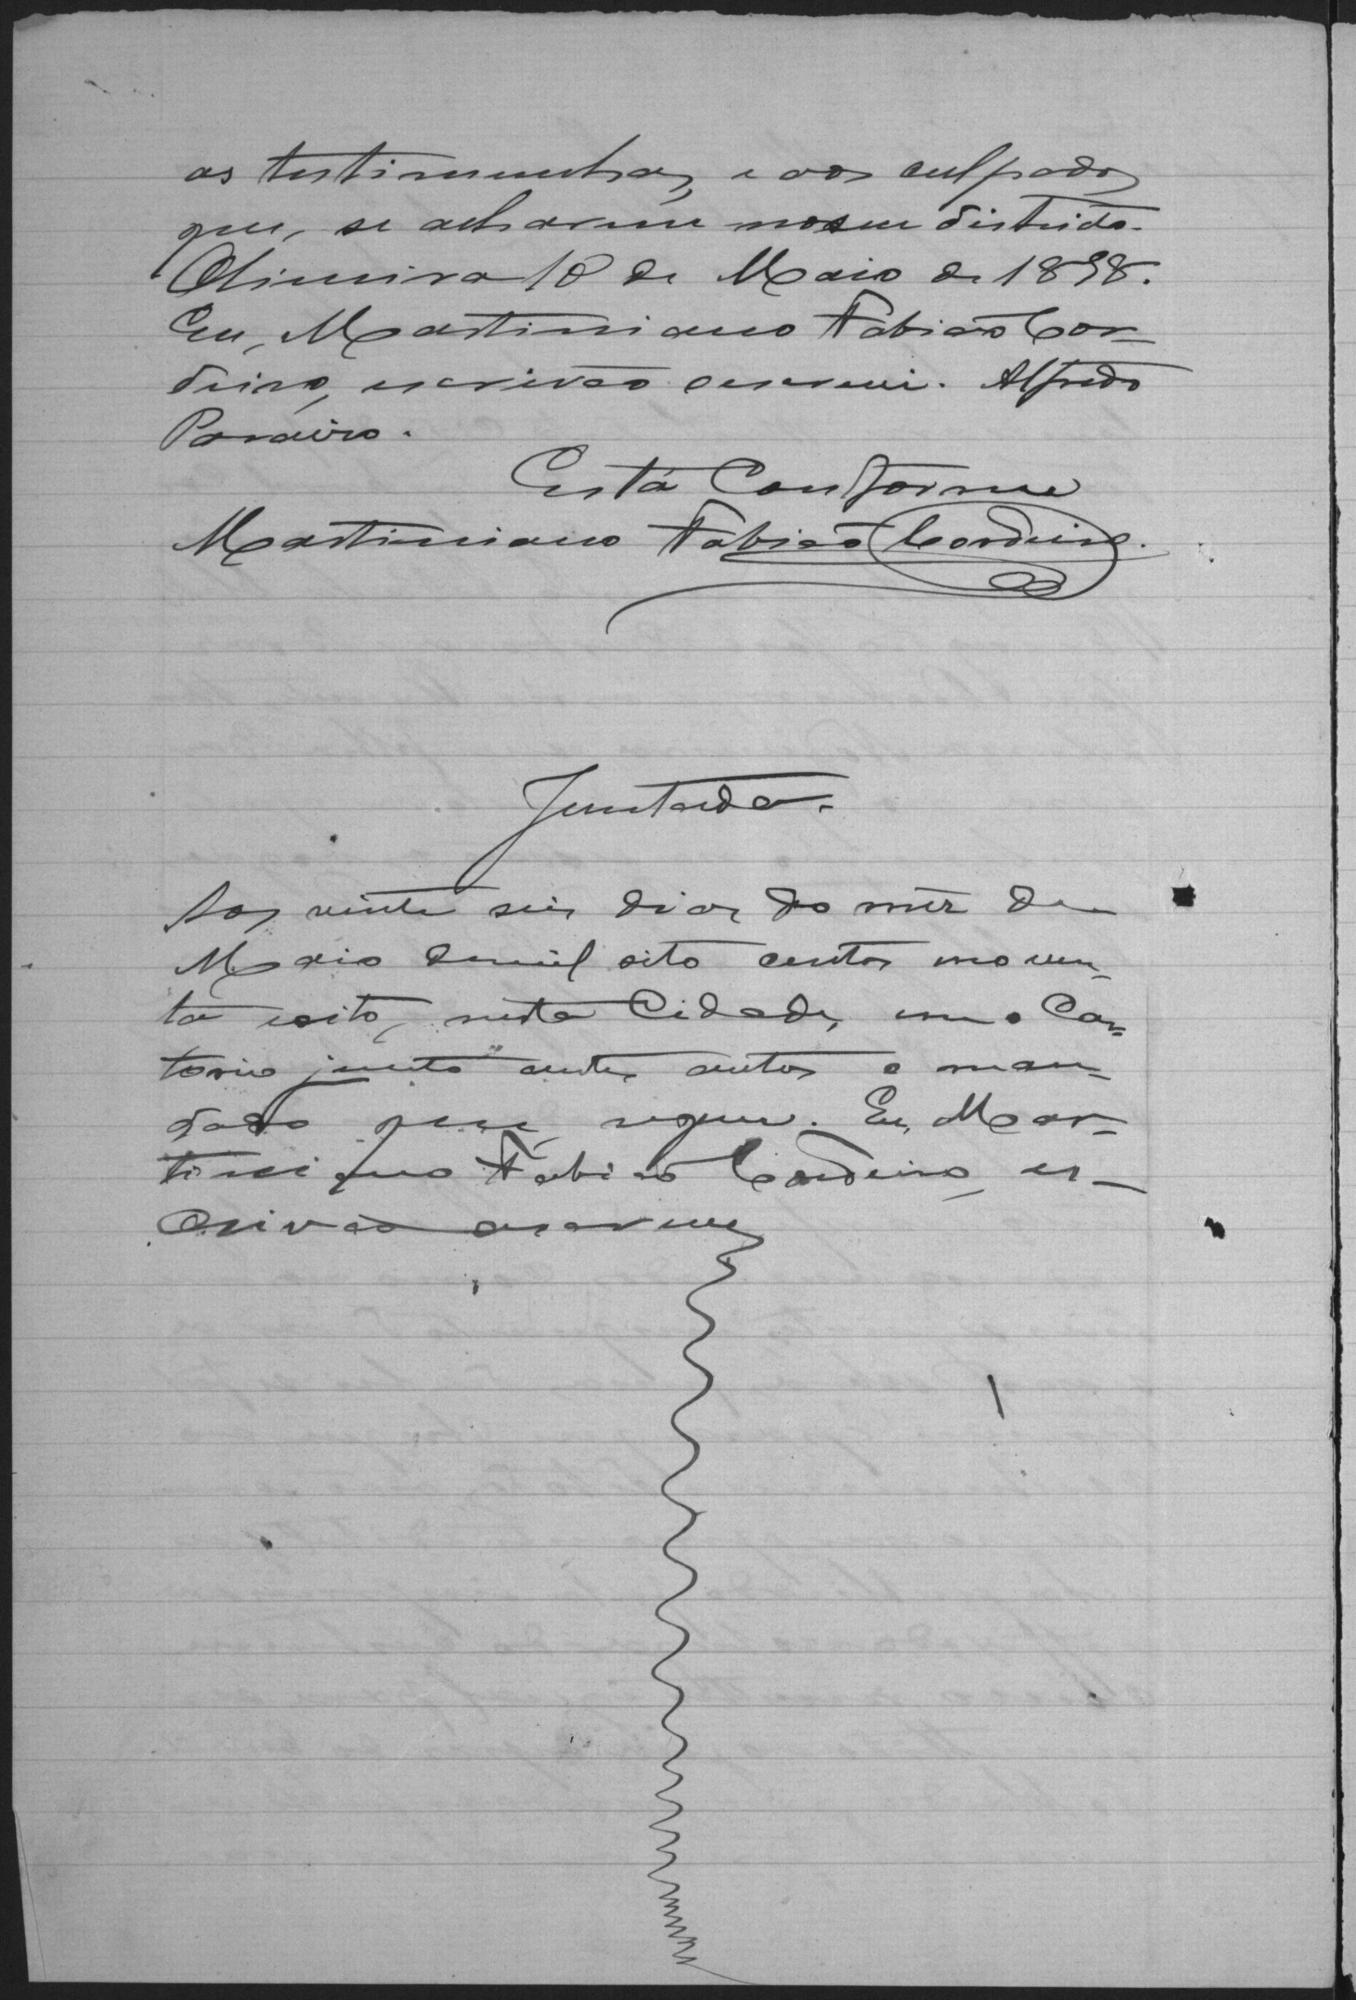 as testimunhas, e aos culpados
que, se acharem no seu districto.
Limeira 18 de Maio de 1898.
Eu, Martiniano Fabião Cor-
deiro, escrivão escrevi. Alfredo
Está Conforme
Martiniano Fabião Cordeiro.
Juntada.
Aos vinte seis dias do mez de
Maio de mil oito centos noven-
ta e oito, nesta Cidade, em o Car-
torio junto a estes autos o man-
dado que segue. Eu, Mar-
tiniano Fabião Cordeiro, es-
crivão escrevi